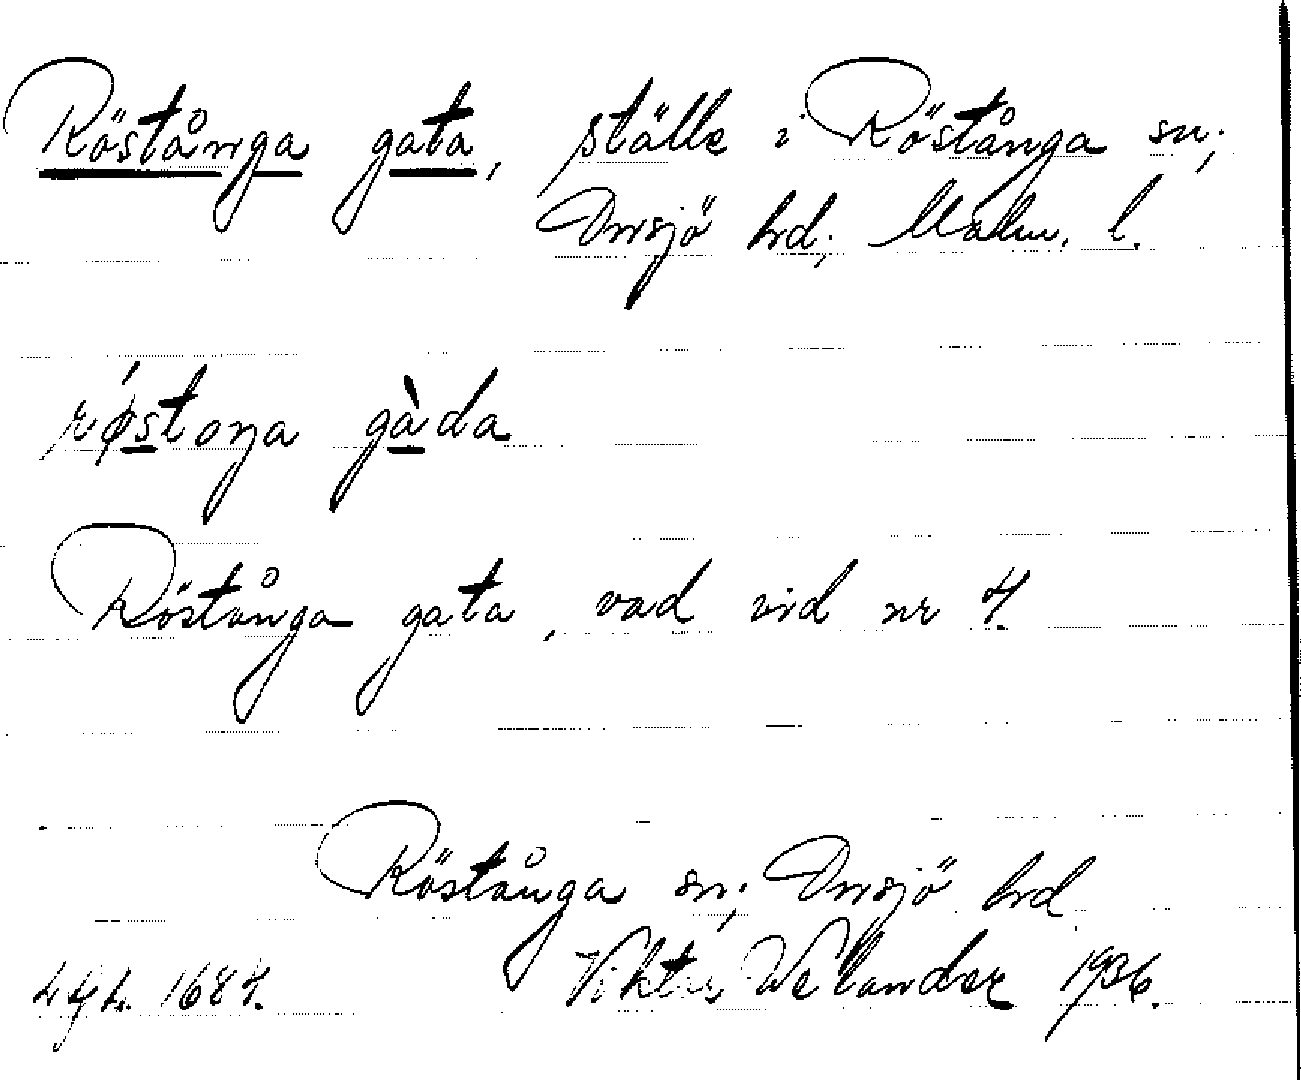 Röstånga gata, ställe i Röstånga sn;
Onsjö hrd; Malm. l.
rǿstoŋa gàda
Röstånga gata, vad vid nr 4.
Röstånga sn; Onsjö hrd
Viktor Welander 1936.